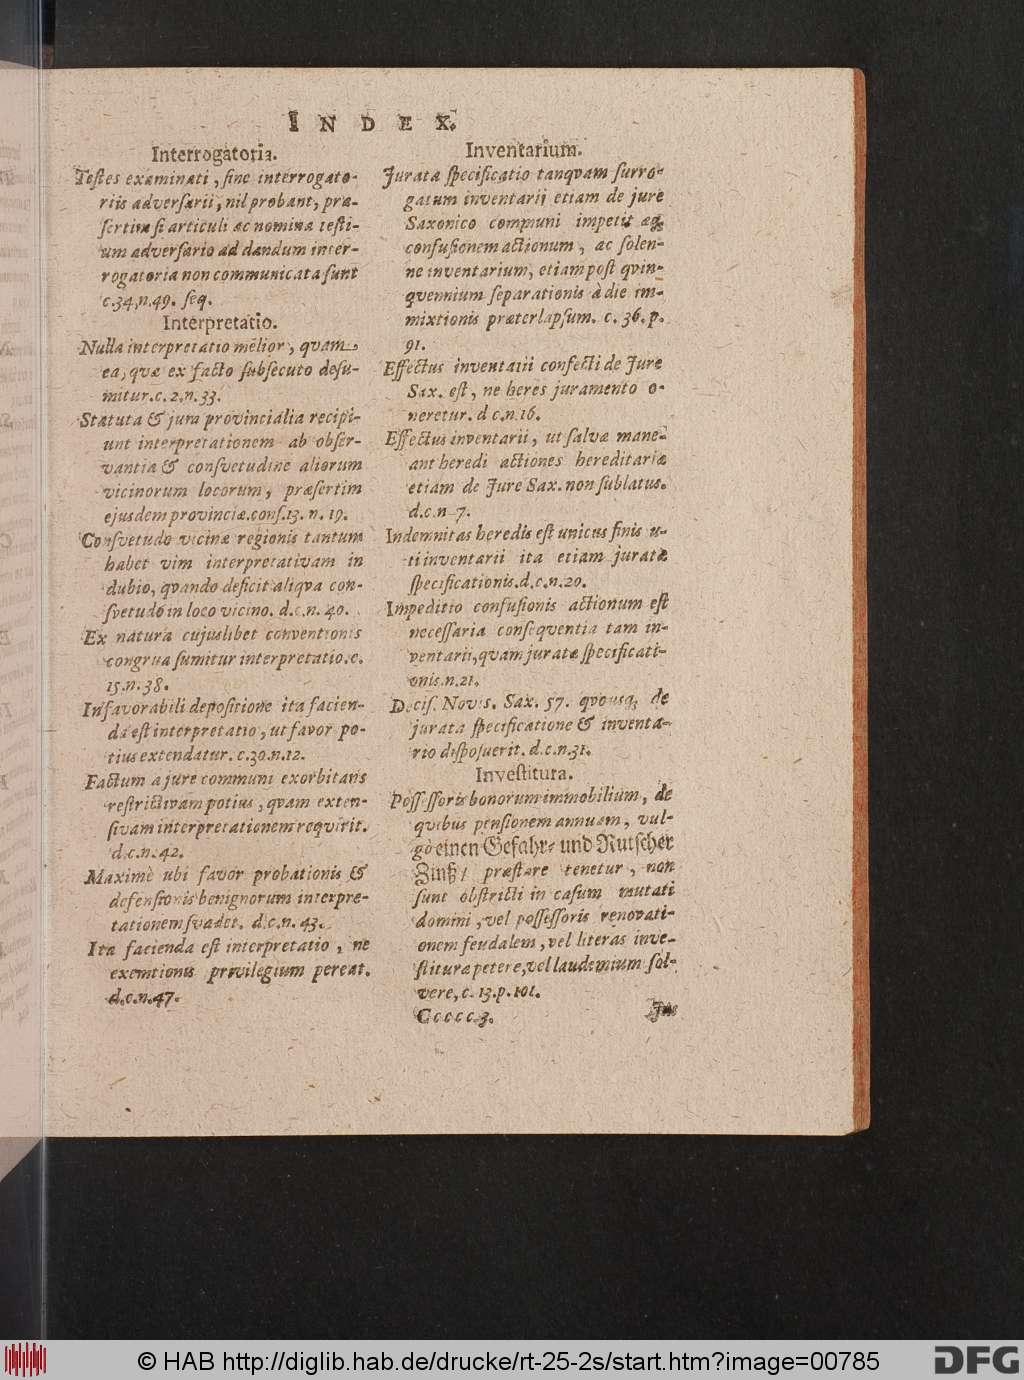 INDEX.
Interrogatoria.
Testes examinati, sine interrogato-
riis adversarii, nil probant, præ-
sertim si articuli ac nomina testi-
um adversario ad dandum inter-
rogatoria non communicata sunt
c.34,n.49. seq.
Interpretatio.
Nulla interpretatio melior, quam
ea, quæ ex facto subsecuto desu-
mitur.c.2,n.33.
Statuta & jura provincialia recipi-
unt interpretationem ab obser-
vantia & consvetudine aliorum
vicinorum locorum, præsertim
ejusdem provinciæ.cons.13. n. 19.
Consvetudo vicinæ regionis tantum
habet vim interpretativam in
dubio, qvando deficit aliqva con-
svetudo in loco vicino. d.c.n. 40.
Ex natura cujuslibet conventionis
congrua sumitur interpretatio.c.
15.n.38.
In favorabili depositione ita facien-
da est interpretatio, ut favor po-
tius extendatur. c.30.n.12.
Factum a jure communi exorbitans
restrictivam potius, qvam exten-
sivam interpretationem reqvirit.
d.c.n.42.
Maximè ubi favor probationis &
defensionis benignorum interpre-
tationem svadet. d.c.n. 43.
Ita facienda est interpretatio, ne
exemtionis privilegium pereat.
d.c.n.47.
Inventarium.
Jurata specificatio tanqvam surro-
gatum inventarii etiam de jure
Saxonico communi impetit
confusionem actionum, ac solen-
ne inventarium, etiam post qvin-
qvennium separationis à die im-
mixtionis præterlapsum. c. 36. p.
91.
Effectus inventarii confecti de Jure
Sax. est, ne heres juramento o-
neretur. d c.n.16.
Effectus inventarii, ut salvæ mane-
ant heredi actiones hereditariæ
etiam de Jure Sax. non sublatus.
d.c.n 7.
Indemnitas heredis est unicus finis u-
ti inventarii ita etiam juratæ
specificationis.d.c.n.20.
Impeditio confusionis actionum est
necessaria conseqventia tam in-
ventarii, qvam juratæ specificati-
onis.n.21.
Decis. Novis. Sax. 57. qvousq; de
jurata specificatione & inventa-
rio disposuerit. d.c.n.31.
Investitura.
Possessoris bonorum immobilium, de
qvibus pensionem annuam, vul-
gò einen Gefahr- und Rutscher
Zinß/ præstare tenetur, non
sunt obstricti in casum mutati
domini, vel possessoris renovati-
onem feudalem, vel literas inve-
stituræ petere, vel laudemium sol-
vere, c. 13.p.101.
Ccccc 3.
© HAB http://diglib.hab.de/drucke/rt-25-2s/start.htm?image=00785
DFG